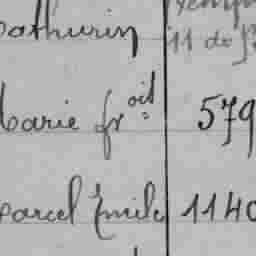 athurin 11 do
arie fr^oit 579
arcel Emile 1140